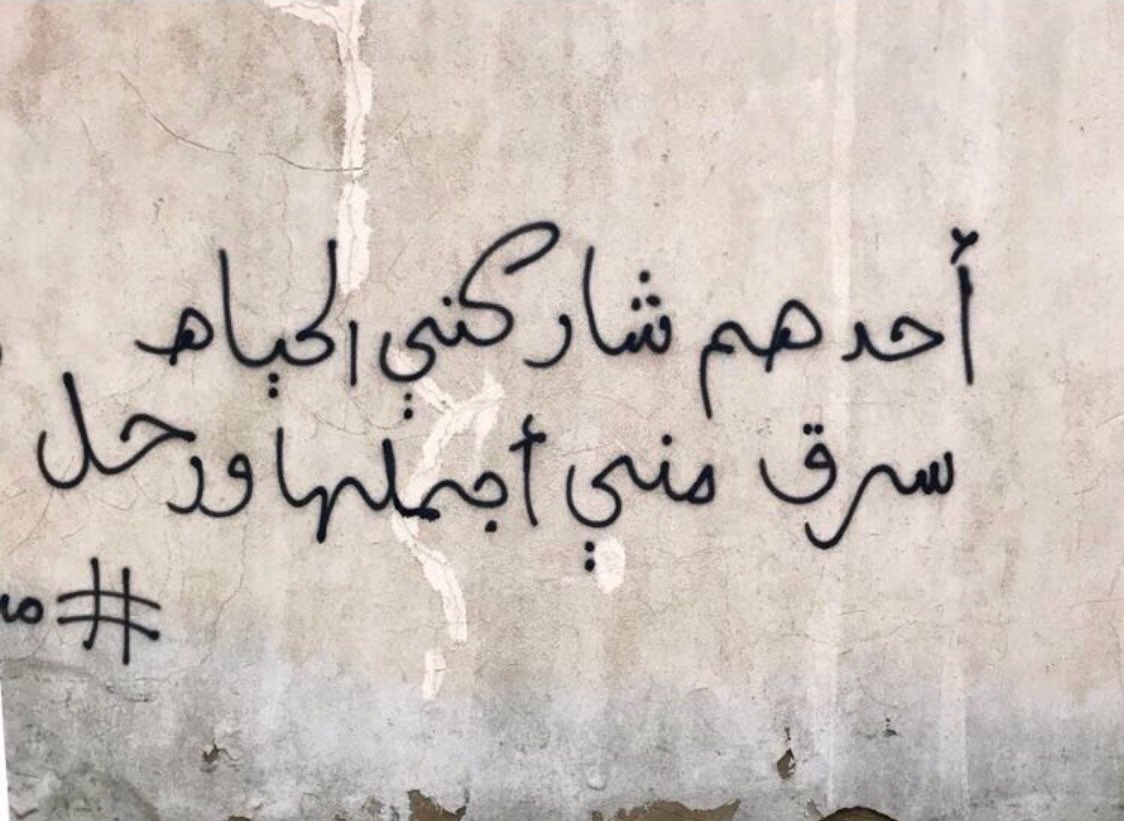 أحدهم شاركني الحياه
سرق مني أجملها ورحل
#